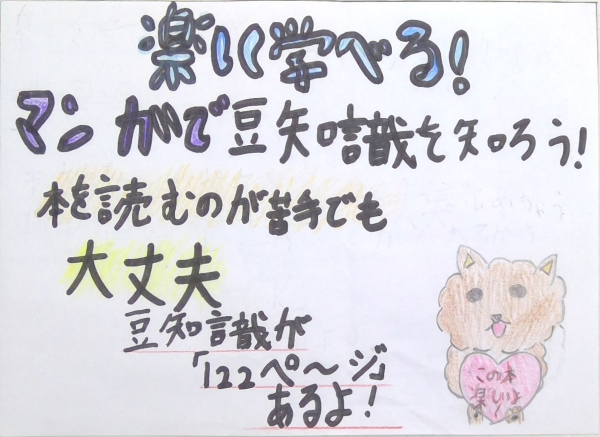 楽しい学べる!
マンガで豆知識を知ろう!
本を読むのが苦手でも
大丈夫
豆知識が
「122ペ〜ジ」
あるよ!
この本
楽しいよ
!